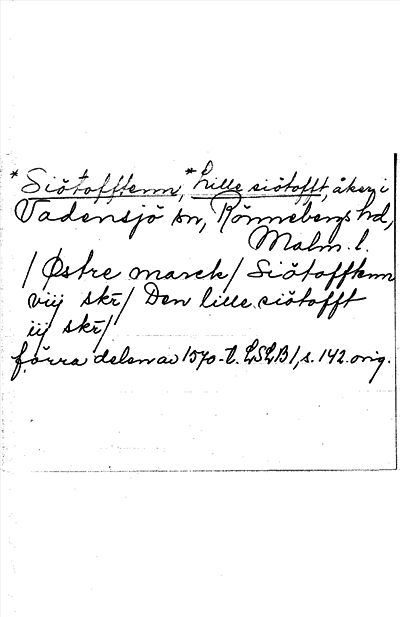 *Siötofftenn, *Lille siötofft, åker i
Vadensjö sn, Rönnebergs hd,
Malm. l.
/ Østre marck / Siötofftenn
viij skr̄ / Den lille siötofft
iij skr̄ /
förra delen av 1570-t. LSLB 1, s. 142. orig.